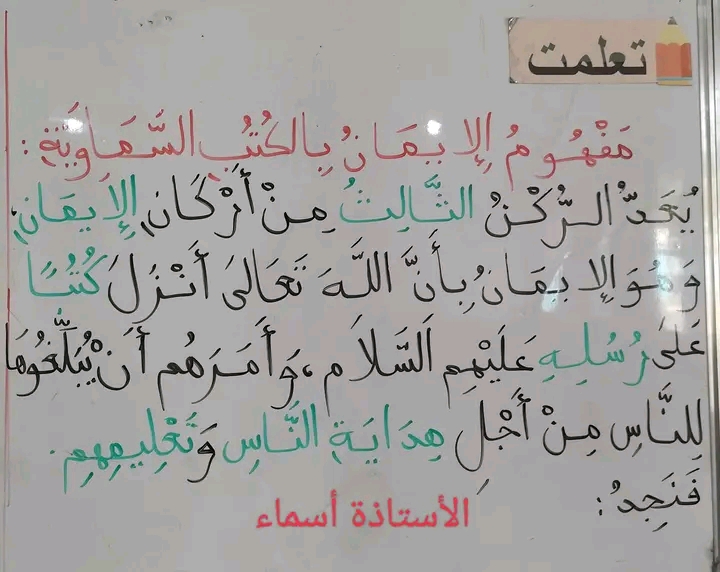 تعلمت
مَفْهُومُ الإِيمَانُ بِالكُتُبِ السَّمَاوِيَّةِ:
يُعَدُّ الرُّكْنُ الثَّالِثُ مِنْ أَرْكَانِ الإِيمَانِ،
وَهُوَ الإِيمَانُ بِأَنَّ اللَّهَ تَعَالَى أَنْزَلَ كُتُبًا
عَلَى رُسُلِهِ عَلَيْهِم السَّلَام، وَأَمَرَهُم أَنْ يُبَلِّغُوهَا
لِلنَّاسِ مِنْ أَجْلِ هِدَايَةِ النَّاسِ وَتَعْلِيمِهِم.
فَنَجِدُ:
الأستاذة أسماء